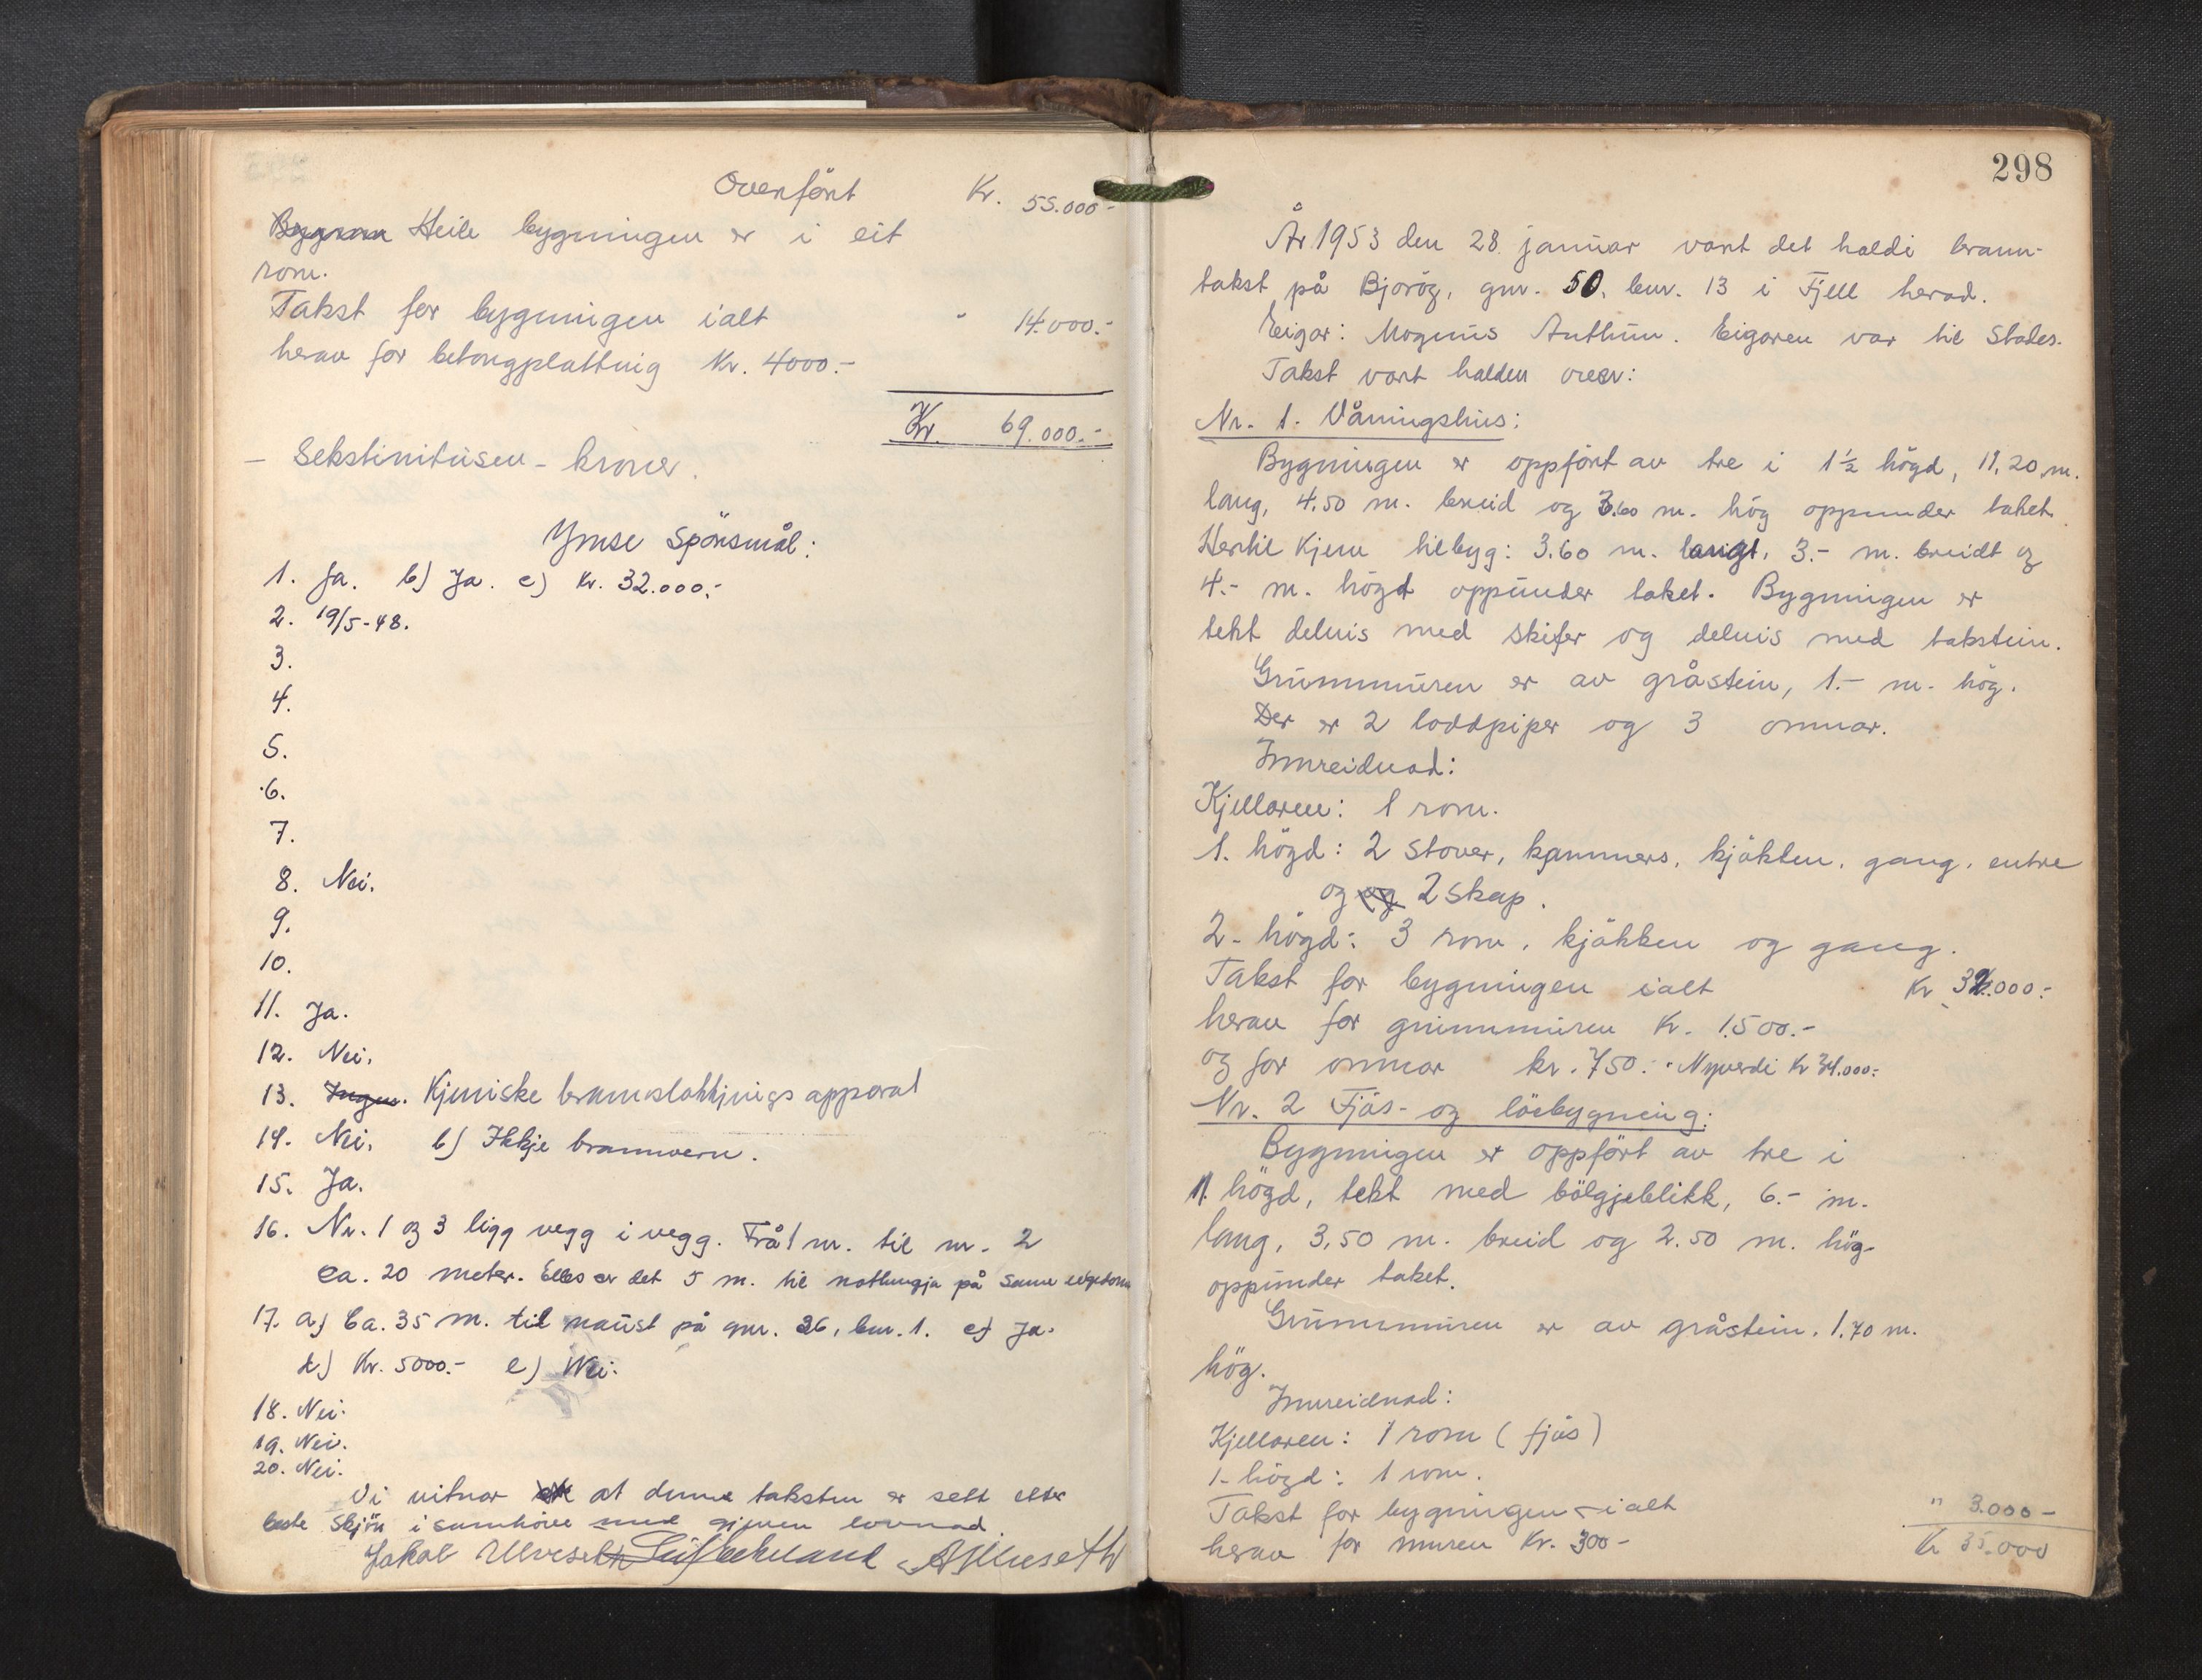 Overfört Kr. 55.000-
Heile bygningen er i eit
rom.
Takst for bygningen ialt " 14.000.-
herav for betongplatting Kr. 4000.-
Kr. 69.000.-
- Sekstinitusen - kroner.
Ymse Spönsmål:
1. Ja. b) Ja. c) Kr. 32.000.-
2. 19/5-48.
3.
4.
5.
6.
7.
8. Nei.
9.
10.
11. Ja.
12. Nei.
13. Ingen. Kjemiske brannslokkjings apparat
14. Nei. b) Ikkje brannvern.
15. Ja.
16. Nr. 1 og 3 ligg vegg i vegg. Frå 1 nr. til nr. 2
ca. 20 meter. Elles er det 5 m. til på same eigedom
17. a) Ca. 35 m. til naust på gnr. 36, bnr. 1. c) Ja.
d) Kr. 5000.- e) Nei.
18. Nei.
19. Nei.
20. Nei.
Vi vitnar at denne taksten er sett etter
beste skjön i samhöve med gjeven lovnad.
Jakob Ulveseth
298
År 1953 den 28. januar vart det haldi brann-
takst på Bjoröy, gnr. 50, bnr. 13 i Fjell herad.
Eigar: Magnus Anthun. Eigaren var til Stades.
Takst vart halden over:
Nr. 1. Våningshus:
Bygningen er oppfört av tre i 1½ högd, 11,20 m.
lang, 4.50 m. breid og 3.60 m. hög oppunder taket.
Hertil kjem tilbyg: 3.60 m. langt, 3.- m. breidt og
4.- m. högd oppunder taket. Bygningen er
tekt delvis med skifer og delvis med takstein.
Grunnmuren er av gråstein, 1.- m. hög.
Der er 2 loddpiper og 3 omnar.
Innreidnad:
Kjellaren: 1 rom.
1. högd: 2 stover, kammers, kjökken, gang, entre
og og 2 skap.
2. högd: 3 rom, kjökken og gang.
Takst for bygningen ialt Kr 32.000:-
herav for grunnmuren Kr. 1.500.-
og for omnar kr. 750:- Nyverdi Kr 34.000:-
Nr. 2 Fjös- og löebygning:
Bygningen er oppfört av tre i
1. högd, tekt med bölgjeblikk, 6.- m.
lang, 3,50 m. breid og 2.50 m. hög
oppunder taket.
Grunnmuren er av gråstein, 1.70 m.
hög.
Innreidnad:
Kjellaren: 1 rom (fjös)
1. högd: 1 rom.
Takst for bygningen ialt " 3.000-
herav for muren Kr. 300- Kr 35.000